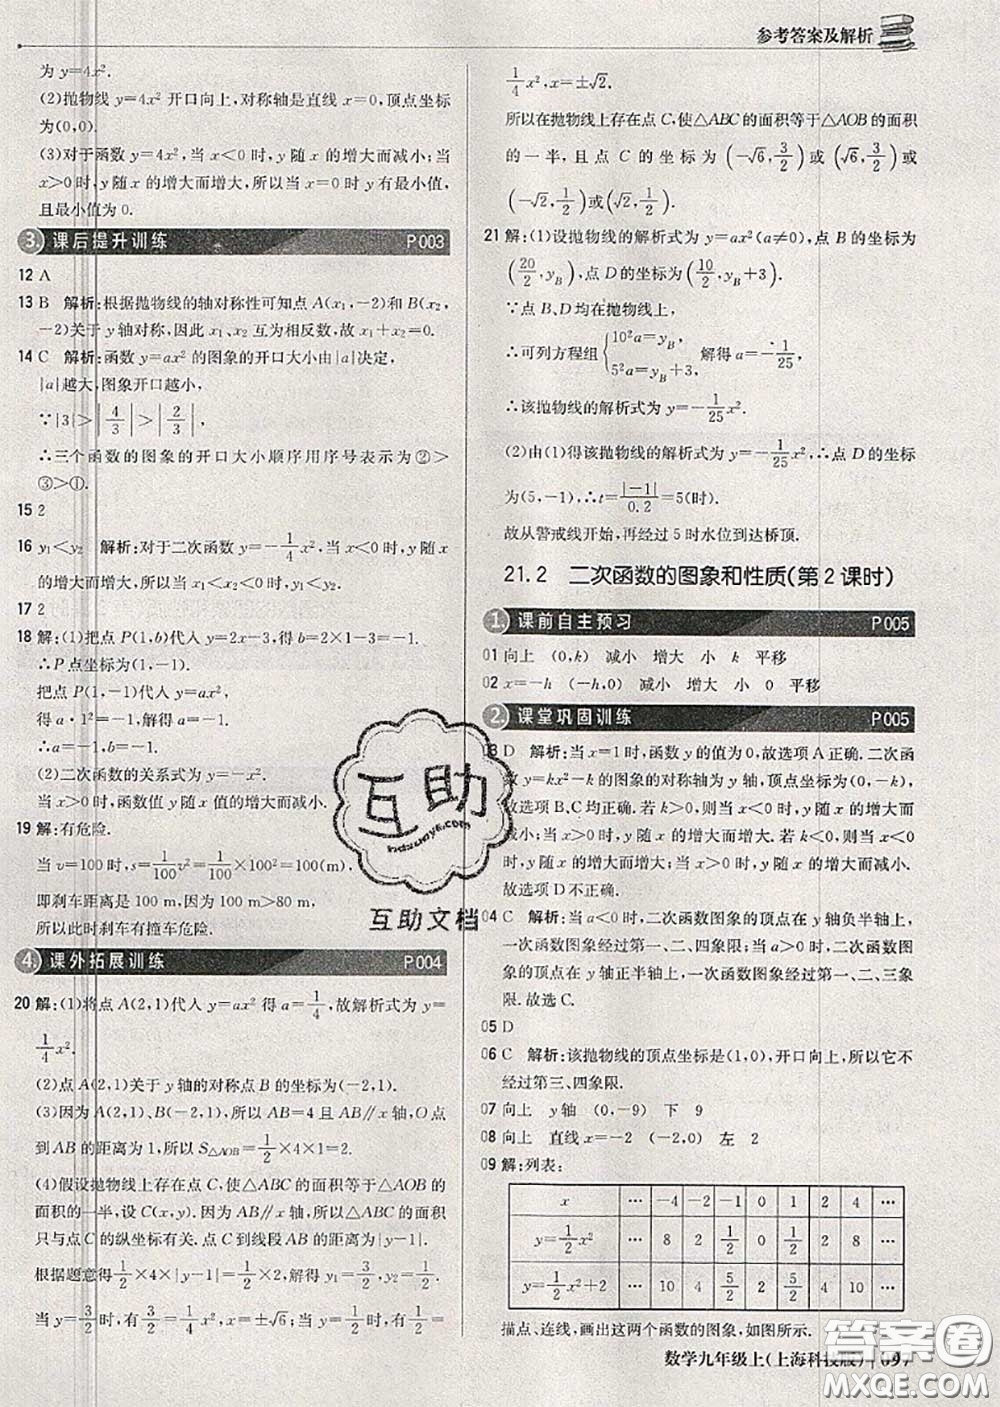 参考答案及解析
为 y=4x².
(2)抛物线 y=4x² 开口向上,对称轴是直线 x=0,顶点坐标
为(0,0).
(3)对于函数 y=4x²,当 x<0 时,y 随 x 的增大而减小;当
x>0 时,y 随 x 的增大而增大,所以当 x=0 时 y 有最小值,
且最小值为 0.
3. 课后提升训练 P003
12 A
13 B 解析:根据抛物线的轴对称性可知点 A(x₁,-2)和 B(x₂,
-2)关于 y 轴对称,因此 x₁、x₂ 互为相反数,故 x₁+x₂=0.
14 C 解析:函数 y=ax² 的图象的开口大小由|a|决定,
|a|越大,图象开口越小,
∵|3|>|4/3|>|2/3|,
∴三个函数的图象的开口大小顺序用序号表示为②>
③>①.
15 2
16 y₁<y₂ 解析:对于二次函数 y=-1/4x²,当 x<0 时,y 随 x
的增大而增大,所以当 x₁<x₂<0 时,y₁<y₂.
17 2
18 解:(1)把点 P(1,b)代入 y=2x-3,得 b=2×1-3=-1.
∴P 点坐标为(1,-1).
把点 P(1,-1)代入 y=ax²,
得 a·1²=-1,
∴a=-1.
(2)二次函数的关系式为 y=-x².
当 x<0 时,函数值 y 随 x 值的增大而增大.
19 解:有危险.
当 v=100 时,s=1/100v²=1/100×100²=100(m),
即刹车距离是 100 m,因为 100 m>80 m,
所以此时刹车有撞车危险.
4. 课外拓展训练 P004
20 解:(1)将点 A(2,1)代入 y=ax² 得 a=1/4,故解析式为 y=
1/4x².
(2)点 A(2,1)关于 y 轴的对称点 B 的坐标为(-2,1).
(3)因为 A(2,1),B(-2,1),所以 AB=4 且 AB∥x 轴,O点
到 AB 的距离为 1,所以 S△AOB=1/2×4×1=2.
(4)假设抛物线上存在点 C,使△ABC 的面积等于△AOB 的
面积的一半,设 C(x,y).因为 AB∥x 轴,所以△ABC 的面积
只与点 C 的纵坐标有关.点 C 到线段 AB 的距离为|y-1|.
根据题意得1/2×4×|y-1|=1/2×2.解得 y₁=3/2,y₂=1/2.
当 y=3/2时,有3/2=1/4x²,x=±√6,当 y=1/2时,有1/2=
1/4x²,x=±√2.
所以在抛物线上存在点 C,使△ABC 的面积等于△AOB 的面积
的一半,且点 C 的坐标为(-√6,3/2)或(√6,3/2)或
(-√2,1/2)或(√2,1/2).
21 解:(1)设抛物线的解析式为 y=ax²(a≠0),点 B 的坐标为
(20/2,yB),点 D 的坐标为(10/2,yB+3).
∵点 B,D 均在抛物线上,
∴可列方程组{10²a=yB, 5²a=yB+3, 解得 a=-1/25.
∴该抛物线的解析式为 y=-1/25x².
(2)由(1)得该抛物线的解析式为 y=-1/25x²,∴点 D 的坐标
为(5,-1),∴t=|-1|/0.2=5(时).
故从警戒线开始,再经过 5 时水位到达桥顶.
21.2 二次函数的图象和性质(第2课时)
1. 课前自主预习 P005
01 向上 (0,k) 减小 增大 小 k 平移
02 x=-h (-h,0) 减小 增大 小 0 平移
2. 课堂巩固训练 P005
03 D 解析:当 x=1时,函数 y 的值为 0,故选项 A 正确.二次函
数 y=kx²-k 的图象的对称轴为 y 轴,顶点坐标为(0,-k),
故选项 B、C 均正确.若 k>0,则当 x>0 时,y 随 x 的增大而
增大;当 x<0 时,y 随 x 的增大而减小;若 k<0,则当 x<0
时,y 随 x 的增大而增大,当 x>0 时,y 随 x 的增大而减小.
故选项 D 不正确.
04 C 解析:当 a<0 时,二次函数图象的顶点在 y 轴负半轴上,
一次函数图象经过第一、二、四象限;当 a>0 时,二次函数图
象的顶点在 y 轴正半轴上,一次函数图象经过第一、二、三象
限.故选 C.
05 D
06 C 解析:该抛物线的顶点坐标是(1,0),开口向上,所以它不
经过第三、四象限.
07 向上 y 轴 (0,-9) 下 9
08 向上 直线 x=-2 (-2,0) 左 2
09 解:列表:
x … -4 -2 -1 0 1 2 4 …
y=1/2x² … 8 2 1/2 0 1/2 2 8 …
y=1/2x²+2 … 10 4 5/2 2 5/2 4 10 …
描点、连线,画出这两个函数的图象,如图所示.
数学九年级上(上海科技版) | 097
互助
hzdocx.com
互助文档
答案圈
MXQE.COM